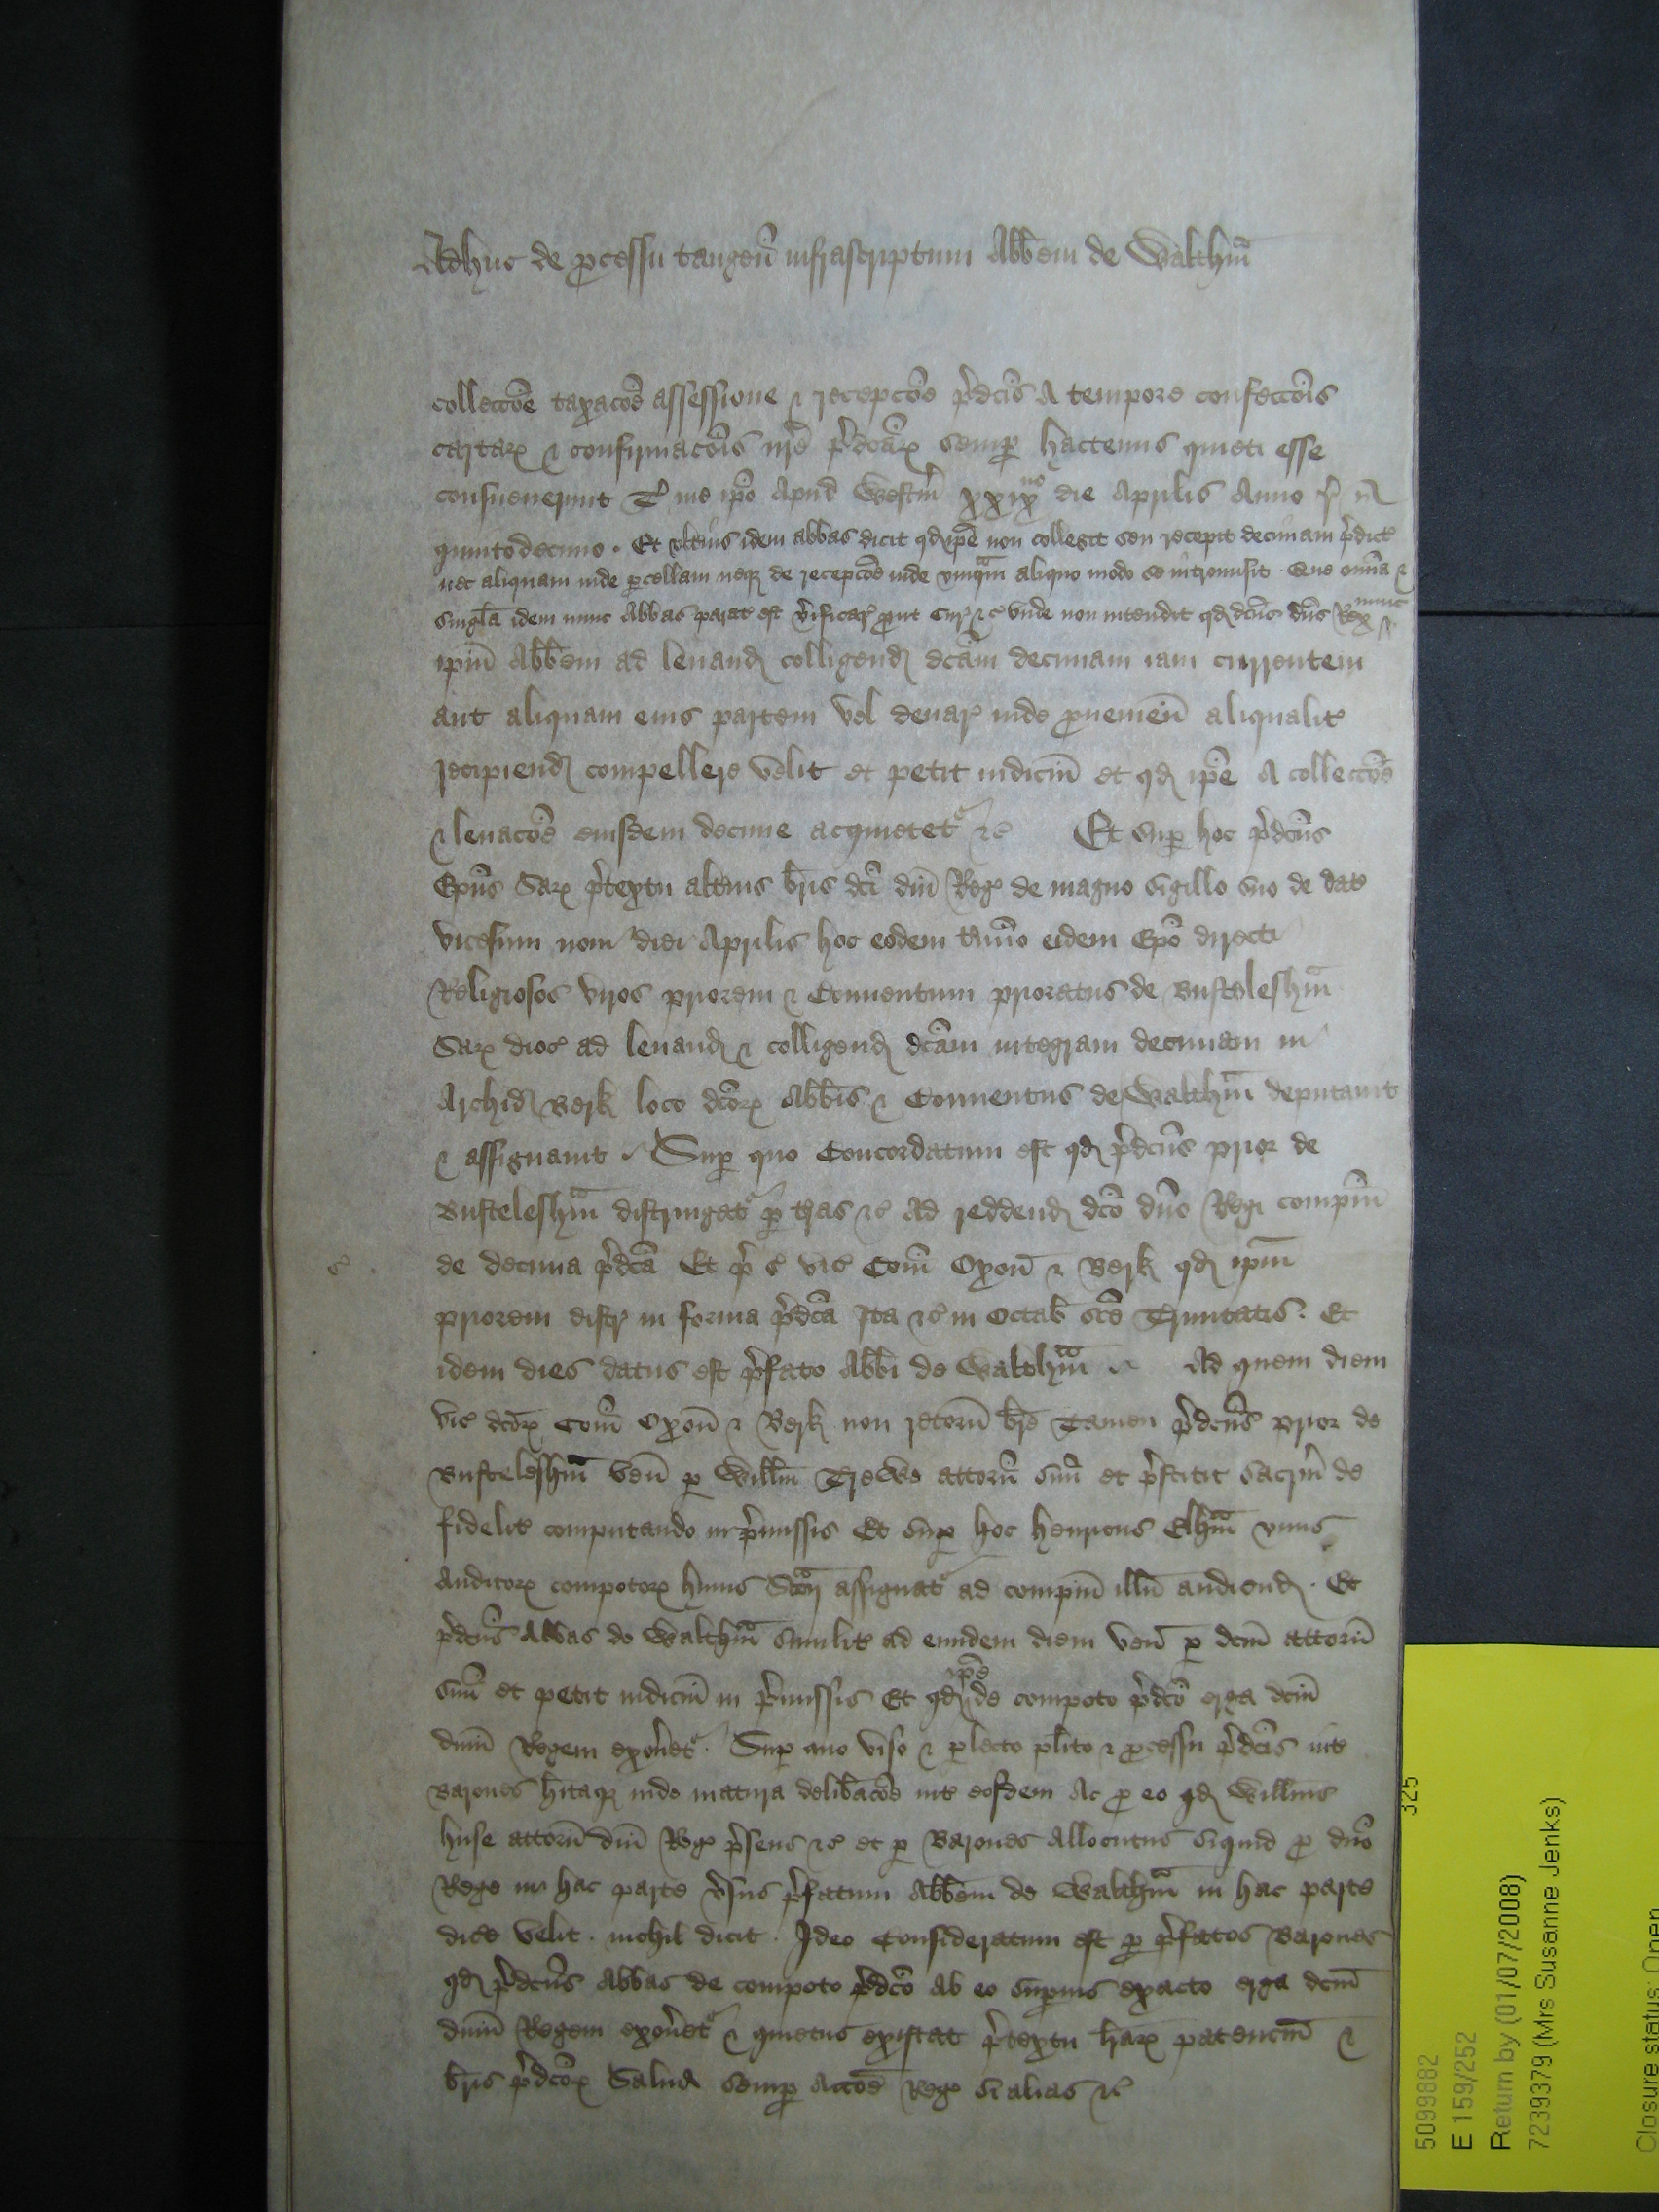 Adhuc de ꝓcessu tangeñ infrascriptum Abb̃em de Walthm̃
collecc̃õe taxac̃oe assessione ⁊ recepcõe p̃dc̃is A tempore confecc̃õis
cartaꝝ ⁊ confirmac̃õis nr̃e p̃dc̃aꝝ semꝑ hactenus quieti esse
consueuerunt T' me ip̃o Apud Westm̃ xxixno die Aprilis Anno r̃ n̄
quintodecimo . Et vlt̃ius idem abbas dicit qđ ip̃e non collegit seu recepit decimam p̃dict'
nec aliquam inde ꝑcellam neqꝫ de recepcõe inde vmqͣm aliquo modo se int̃romisit Que om̃ia ⁊
singl̃a idem nunc Abbas parat' est v̓ificar' ꝓut Cur' ⁊c̃ Vnde non intendit qđ dc̃us dñs Rex nunc
ip̃m Abb̃em ad leuand̃ colligend̃ dc̃am decimam iam currentem
aut aliquam eius partem vel denar' inde ꝓuenieñ aliqualit'
recipiend̃ compellere velit et petit iudiciũ et qđ ip̃e A collecc̃õe
⁊ leuac̃õe eiusdem decime acquietet' ⁊c̃ Et suꝑ hoc p̃dc̃us
Ep̃us Saꝝ p̃textu alt̃ius br̃is dc̃i dñi Reg̃ de magno sigillo suo de dat'
vicesim nom die Aprilis hoc eodem t̃mino eidem Ep̃o directi
Religiosos viros priorem ⁊ Conuentum prioratus de Busteleshm̃
Saꝝ dioc̃ ad leuand̃ ⁊ colligend̃ dc̃am integram decimam in
Archid̃ Berk loco dc̃oꝝ Abb̃is ⁊ Conuentus de Walthm̃ deputauit
⁊ assignauit Suꝑ quo Concordatum est qđ p̃dc̃us prior de
Bustleshm̃ distringat' ꝑ t̃ras ⁊c̃ Ad reddend̃ dc̃o dño Regi comp̃m
de decima p̃dc̃a Et p̃ c̃ vic̃ Com̃ Oxoñ ⁊ Berk qđ ip̃m
priorem distr' in forma p̃dc̃a Ita ⁊c̃ in Octab̃ sc̃e Trinitatis . Et
idem dies datus est p̃fato Abb̃i de Walthm̃ Ad quem diem
vic̃ dc̃oꝝ Com̃ Oxoñ ⁊ Berk non retorñ br̃e Tamen p̃dc̃us prior de
Busteleshm̃ veñ ꝑ Willm̃ Trewe attorñ suũ et p̃stitit sacrm̃ de
fidelit' computando in p̃missis Et suꝑ hoc Henricus Elhm̃ vnus
Auditoꝝ compotoꝝ huius Sc̃cij assignat' ad comp̃m illũ audiend̃ . Et
p̃dc̃us Abbas de Walthm̃ similit' ad eundem diem veñ ꝑ dc̃m attorñ
suũ et petit iudiciũ in p̃missis Et qđ ip̃e de compoto p̃dc̃o erga dc̃m
dñm Regem exon̓et' . Suꝑ quo viso ⁊ ꝑlecto plit̃o ⁊ ꝓcessu p̃dc̃is int'
Barones hĩtaqꝫ inde matura delib̃ac̃õe int' eosdem Ac ꝓ eo qđ Willm̃us
Huse attorñ dñi Reg̃ p̃sens ⁊c̃ et ꝑ Barones Allocutus si quid ꝓ dño
Rege in hac parte v̓sus p̃fatum Abb̃em de Walthm̃ in hac parte
dice velit . nichil dicit . Ideo Consideratum est ꝑ p̃fatos Barones
qđ p̃dc̃us Abbas de compoto p̃dc̃o ab eo suꝑius exacto erga dc̃m
dñm Regem exon̓et' ⁊ quietus existat p̃textu hr̃aꝝ patenciũ ⁊
br̃is p̃dc̃oꝝ Salua semꝑ Acc̃õe Reg̃ si alias ⁊c̃
325
5099882
E 159/252
Return by (01/07/2008)
7239379 (Mrs Susanne Jenks)
Closure status: Open